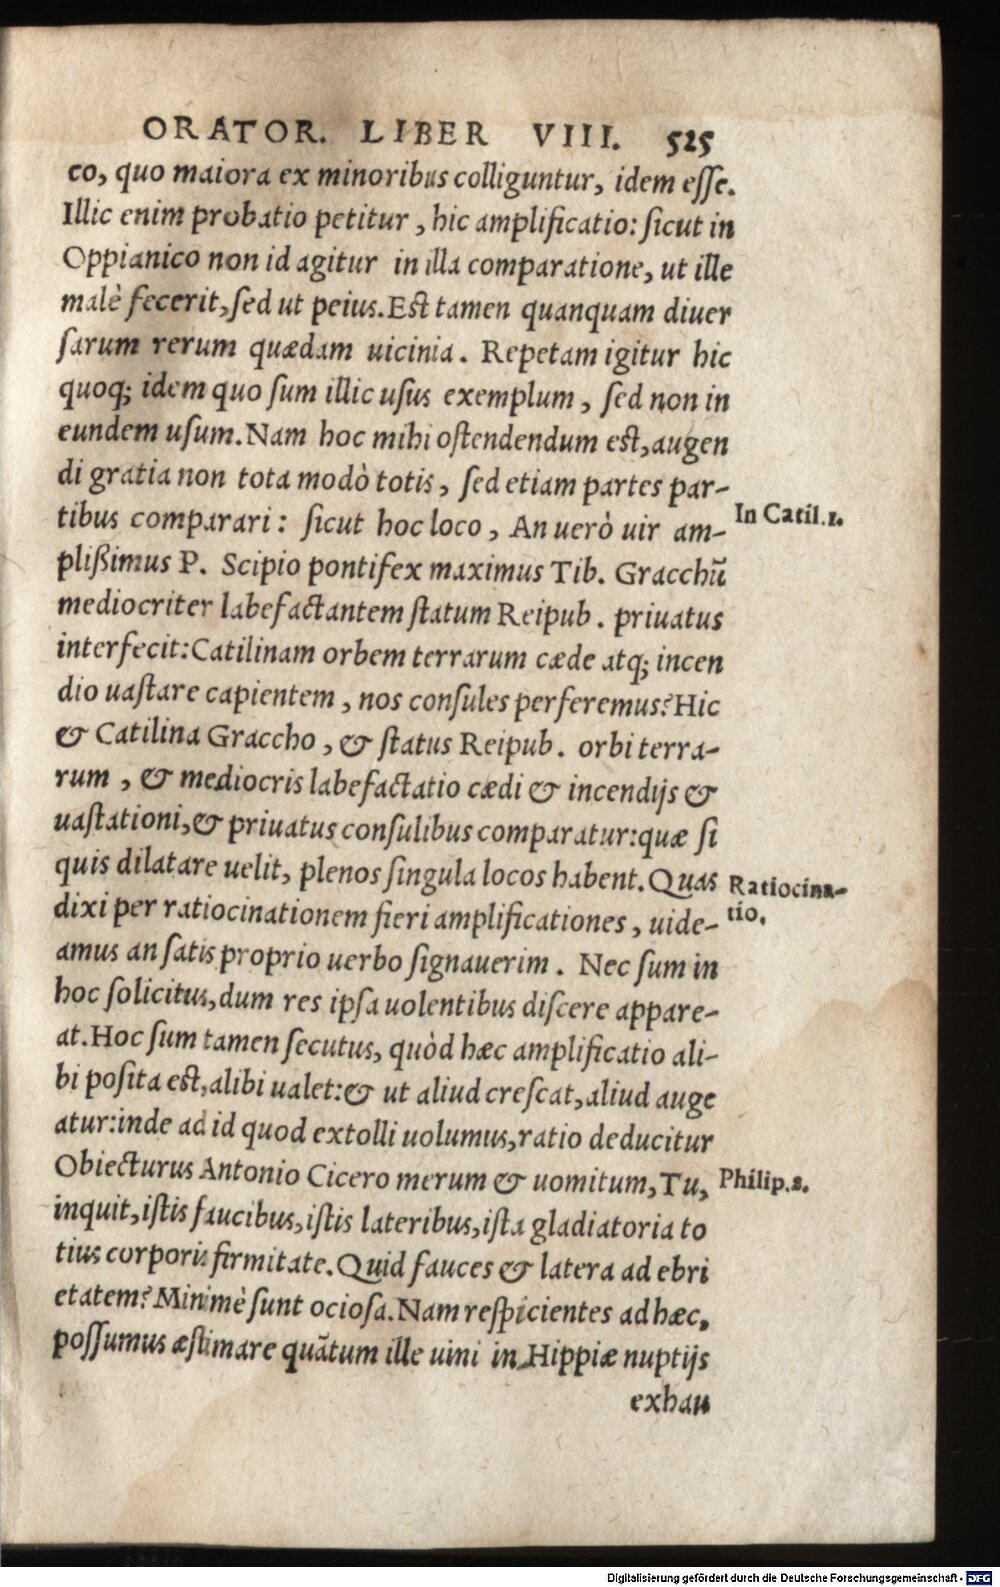 ORATOR. LIBER VIII. 525
co, quo maiora ex minoribus colliguntur, idem esse.
Illic enim probatio petitur, hic amplificatio: sicut in
Oppianico non id agitur in illa comparatione, ut ille
malè fecerit, sed ut peius. Est tamen quanquam diuer
sarum rerum quædam uicinia. Repetam igitur hic
quoq; idem quo sum illic usus exemplum, sed non in
eundem usum. Nam hoc mihi ostendendum est, augen
di gratia non tota modò totis, sed etiam partes par-
tibus comparari: sicut hoc loco, An uerò uir am-
In Catil.1.
plißimus P. Scipio pontifex maximus Tib. Gracchũ
mediocriter labefactantem statum Reipub. priuatus
interfecit: Catilinam orbem terrarum cæde atq; incen
dio uastare capientem, nos consules perferemus? Hic
& Catilina Graccho, & status Reipub. orbi terra-
rum, & mediocris labefactatio cædi & incendijs &
uastationi, & priuatus consulibus comparatur: quæ si
quis dilatare uelit, plenos singula locos habent. Quas
Ratiocina-
tio.
dixi per ratiocinationem fieri amplificationes, uide-
amus an satis proprio uerbo signauerim. Nec sum in
hoc solicitus, dum res ipsa uolentibus discere appare-
at. Hoc sum tamen secutus, quòd hæc amplificatio ali-
bi posita est, alibi ualet: & ut aliud crescat, aliud auge
atur: inde ad id quod extolli uolumus, ratio deducitur
Obiecturus Antonio Cicero merum & uomitum, Tu,
Philip.2.
inquit, istis faucibus, istis lateribus, ista gladiatoria to
tius corporis firmitate. Quid fauces & latera ad ebri
etatem? Minimè sunt ociosa. Nam respicientes ad hæc,
possumus æstimare quãtum ille uini in Hippiæ nuptijs
exhau
Digitalisierung gefördert durch die Deutsche Forschungsgemeinschaft - DFG